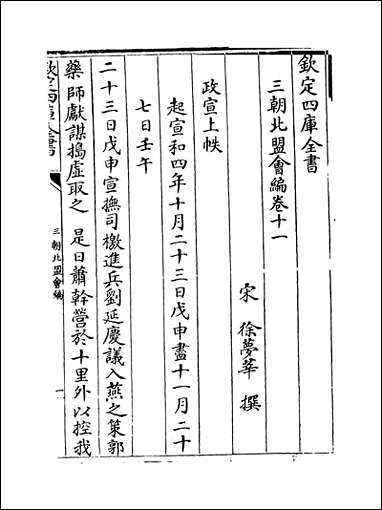 欽定四庫全書
三朝北盟會編卷十一
宋 徐夢莘 撰
政宣上帙
起宣和四年十月二十三日戊申盡十一月二十
七日壬午
二十三日戊申宣撫司檄進兵劉延慶議入燕之策郭
藥師獻謀搗虚取之 是日蕭幹營於十里外以控我
欽定四庫全書
三朝北盟會編
一